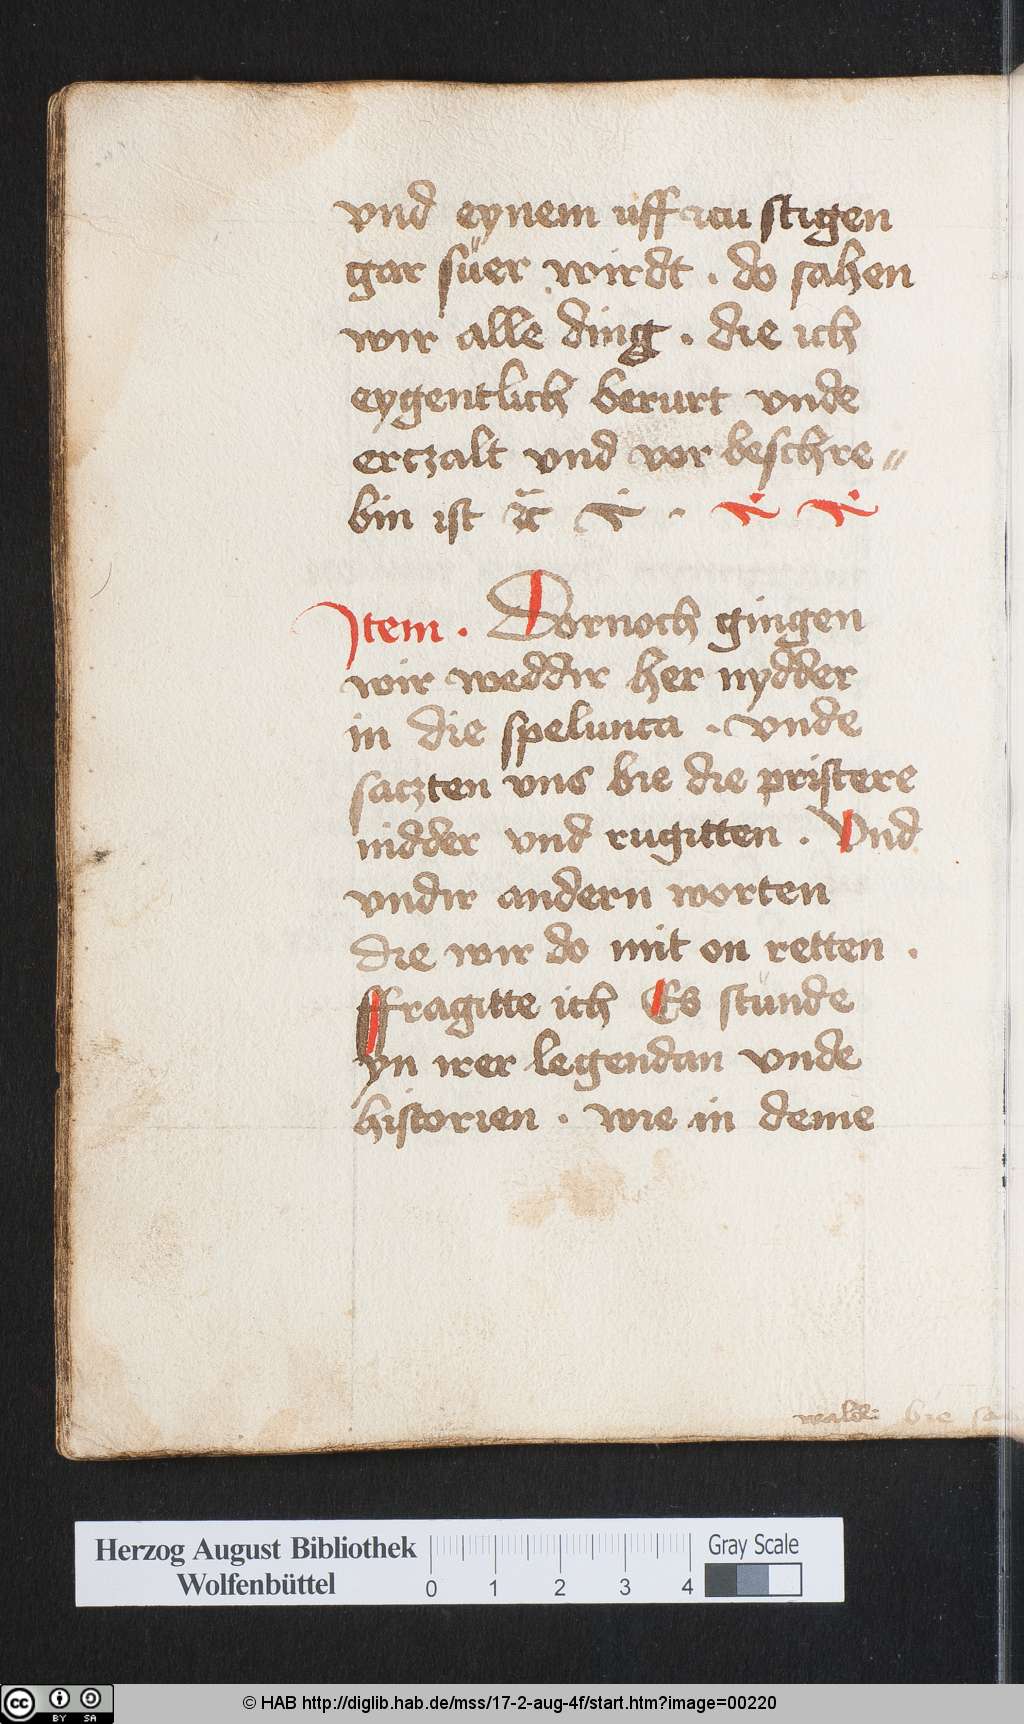 vnd eynem uff zcu stigen
gar sůer wirdt . do sahen
wir alle ding . die ich
eygentlich berurt vnde
erczalt vnd vor beschre〃
bin ist
Item . Dornoch gingen
wir weddir her nydder
in die spelunca . vnde
saczten vns bie die pristere
nidder vnd rugitten . Vnd
vndir andern worten
die wir do mit on retten .
ffragitte ich Es stunde
yn irer legendan vnde
historien . wie in deme
walde bie
Herzog August Bibliothek
Wolfenbüttel
0 1 2 3 4
Gray Scale
cc BY SA
© HAB http://diglib.hab.de/mss/17-2-aug-4f/start.htm?image=00220